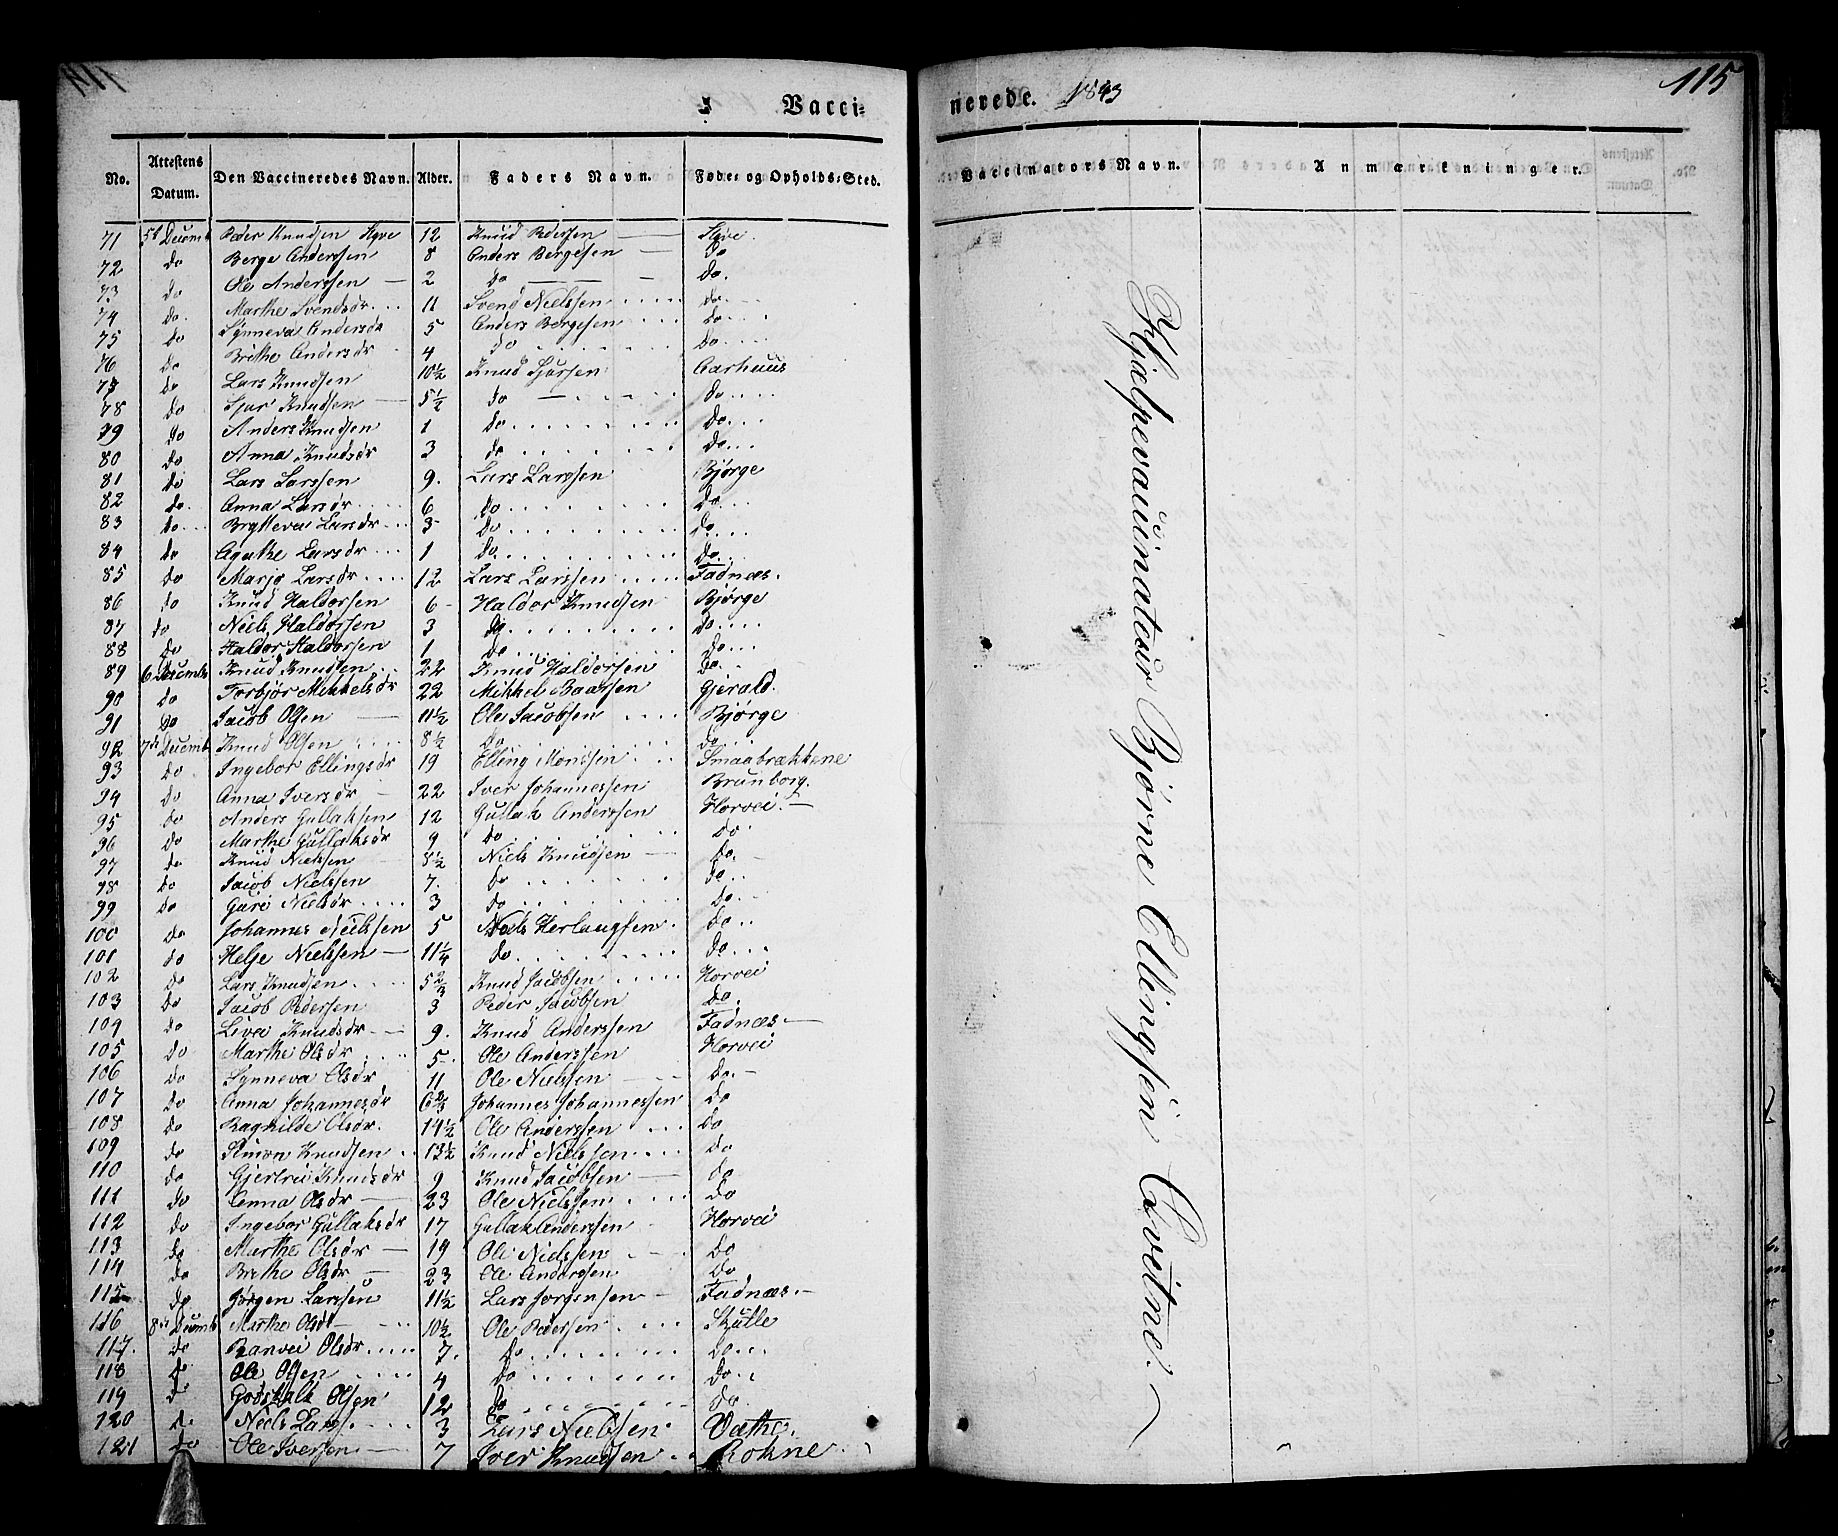 115
Vacci-
nerede. 1843
No. Attestens Datum. Den Vaccineredes Navn. Alder. Faders Navn. Føde- og Opholds-Sted.
Vaccinators Navn. Anmærkninger.
71 5t Decemb Peder Knudsen Styve 12 Knud Pedersen Styve.
72 do Berge Anderssen 8 Anders Bergesen Do
73 do Ole Anderssen 2 do Do.
74 do. Marthe Svendsdr 11 Svend Nielssen do.
75 do Synneva Andersdr 5 Anders Bergesen do.
76 do Brithe Andersdr 4 do do.
77 do Lars Knudsen 10½ Knud Sjursen Aarhuus
78 do Sjur Knudsen 5½ do Do
79 do Anders Knudsen 1 do. do.
80 do Anna Knudsdr 3 do do.
81 do Lars Larssen 9. Lars Larssen Bjørge
82 do. Anna Larsdr 6 do. Do
83 do. Brytteva Larsdr 3 do do.
84 do Agathe Larsdr 1 do. do.
85 do Marjo Larsdr 12 Lars Larssen Fadnæs.
86 do Knud Haldorsen 6 Haldor Knudsen Bjørge
87 do Niels Haldorssen 3 do. do.
88 do Haldor Haldorssen 1 do do.
89 6 Decemb Knud Knudsen 22 Knud Haldorsen do.
90 do Torbjør Mikkelsdr 22 Mikkel Baarsen Gjerald.
91 do Jacob Olsen 11½ Ole Jacobsen Bjørge
92 7de Decemb Knud Olsen 8½ do do
93 do Ingebor Ellingsdr 19 Elling Monssen Smaabrækkene
94 do Anna Iversdr 22 Iver Johannessen Brunborg.
95 do Anders Gullaksen 12 Gullak Anderssen Horvei.
96 do Marthe Gullaksdr 9 do do.
97 do Knud Nielssen 8½ Niels Knudsen do.
98 do Jacob Nielssen 7. do do
99 do Guri Nielsdr 3 do do.
100 do Johannes Nielssen 5 Niels Herlaugsen. do
101 do Helje Nielssen 1¼ do. do.
102 do Lars Knudsen 5⅔ Knud Jacobsen Horvei
103 do Jacob Pedersen 3 Peder Jacobsen Do.
104 do Liva Knudsdr 9. Knud Anderssen Fadnæs.
105 do Marthe Olsdr 5. Ole Anderssen Horvei
106 do Synneva Olsdr 11 Ole Nielssen do.
107 do Anna Johannesdr 6⅔ Johannes Johannessen do
108 do Raghilde Olsdr. 14½ Ole Anderssen do
109 do Simon Knudsen 13½ Knud Nielssen do
110 do Gjertrud Knudsdr 9 Knud Jacobsen do
111 do Anna Olsdr 23 Ole Nielssen do
112 do Ingebor Gullaksdr 17 Gullak Anderssen Horvei
113 do Marthe Olsdr 19 Ole Nielssen do
114 do Brithe Olsdr 23 Ole Anderssen do
115 do Jørgen Larssen 11½ Lars Jorgensen Fadnæs.
116 8de Decemb Marthe Olsdr 10½ Ole Pedersen Skutle
117. do Ranvei Olsdr 7. do do
118 do Ole Olsen 4 do do
119 d Godskalk Olsen 12 do do.
120 d. Niels Lars. 3 Lars Nielssen Væthe.
121 do Ole Iversen 7 Iver Knudsen Rokne
Hjelpevaccinateur Bjørne Ellingsen Qvitne.